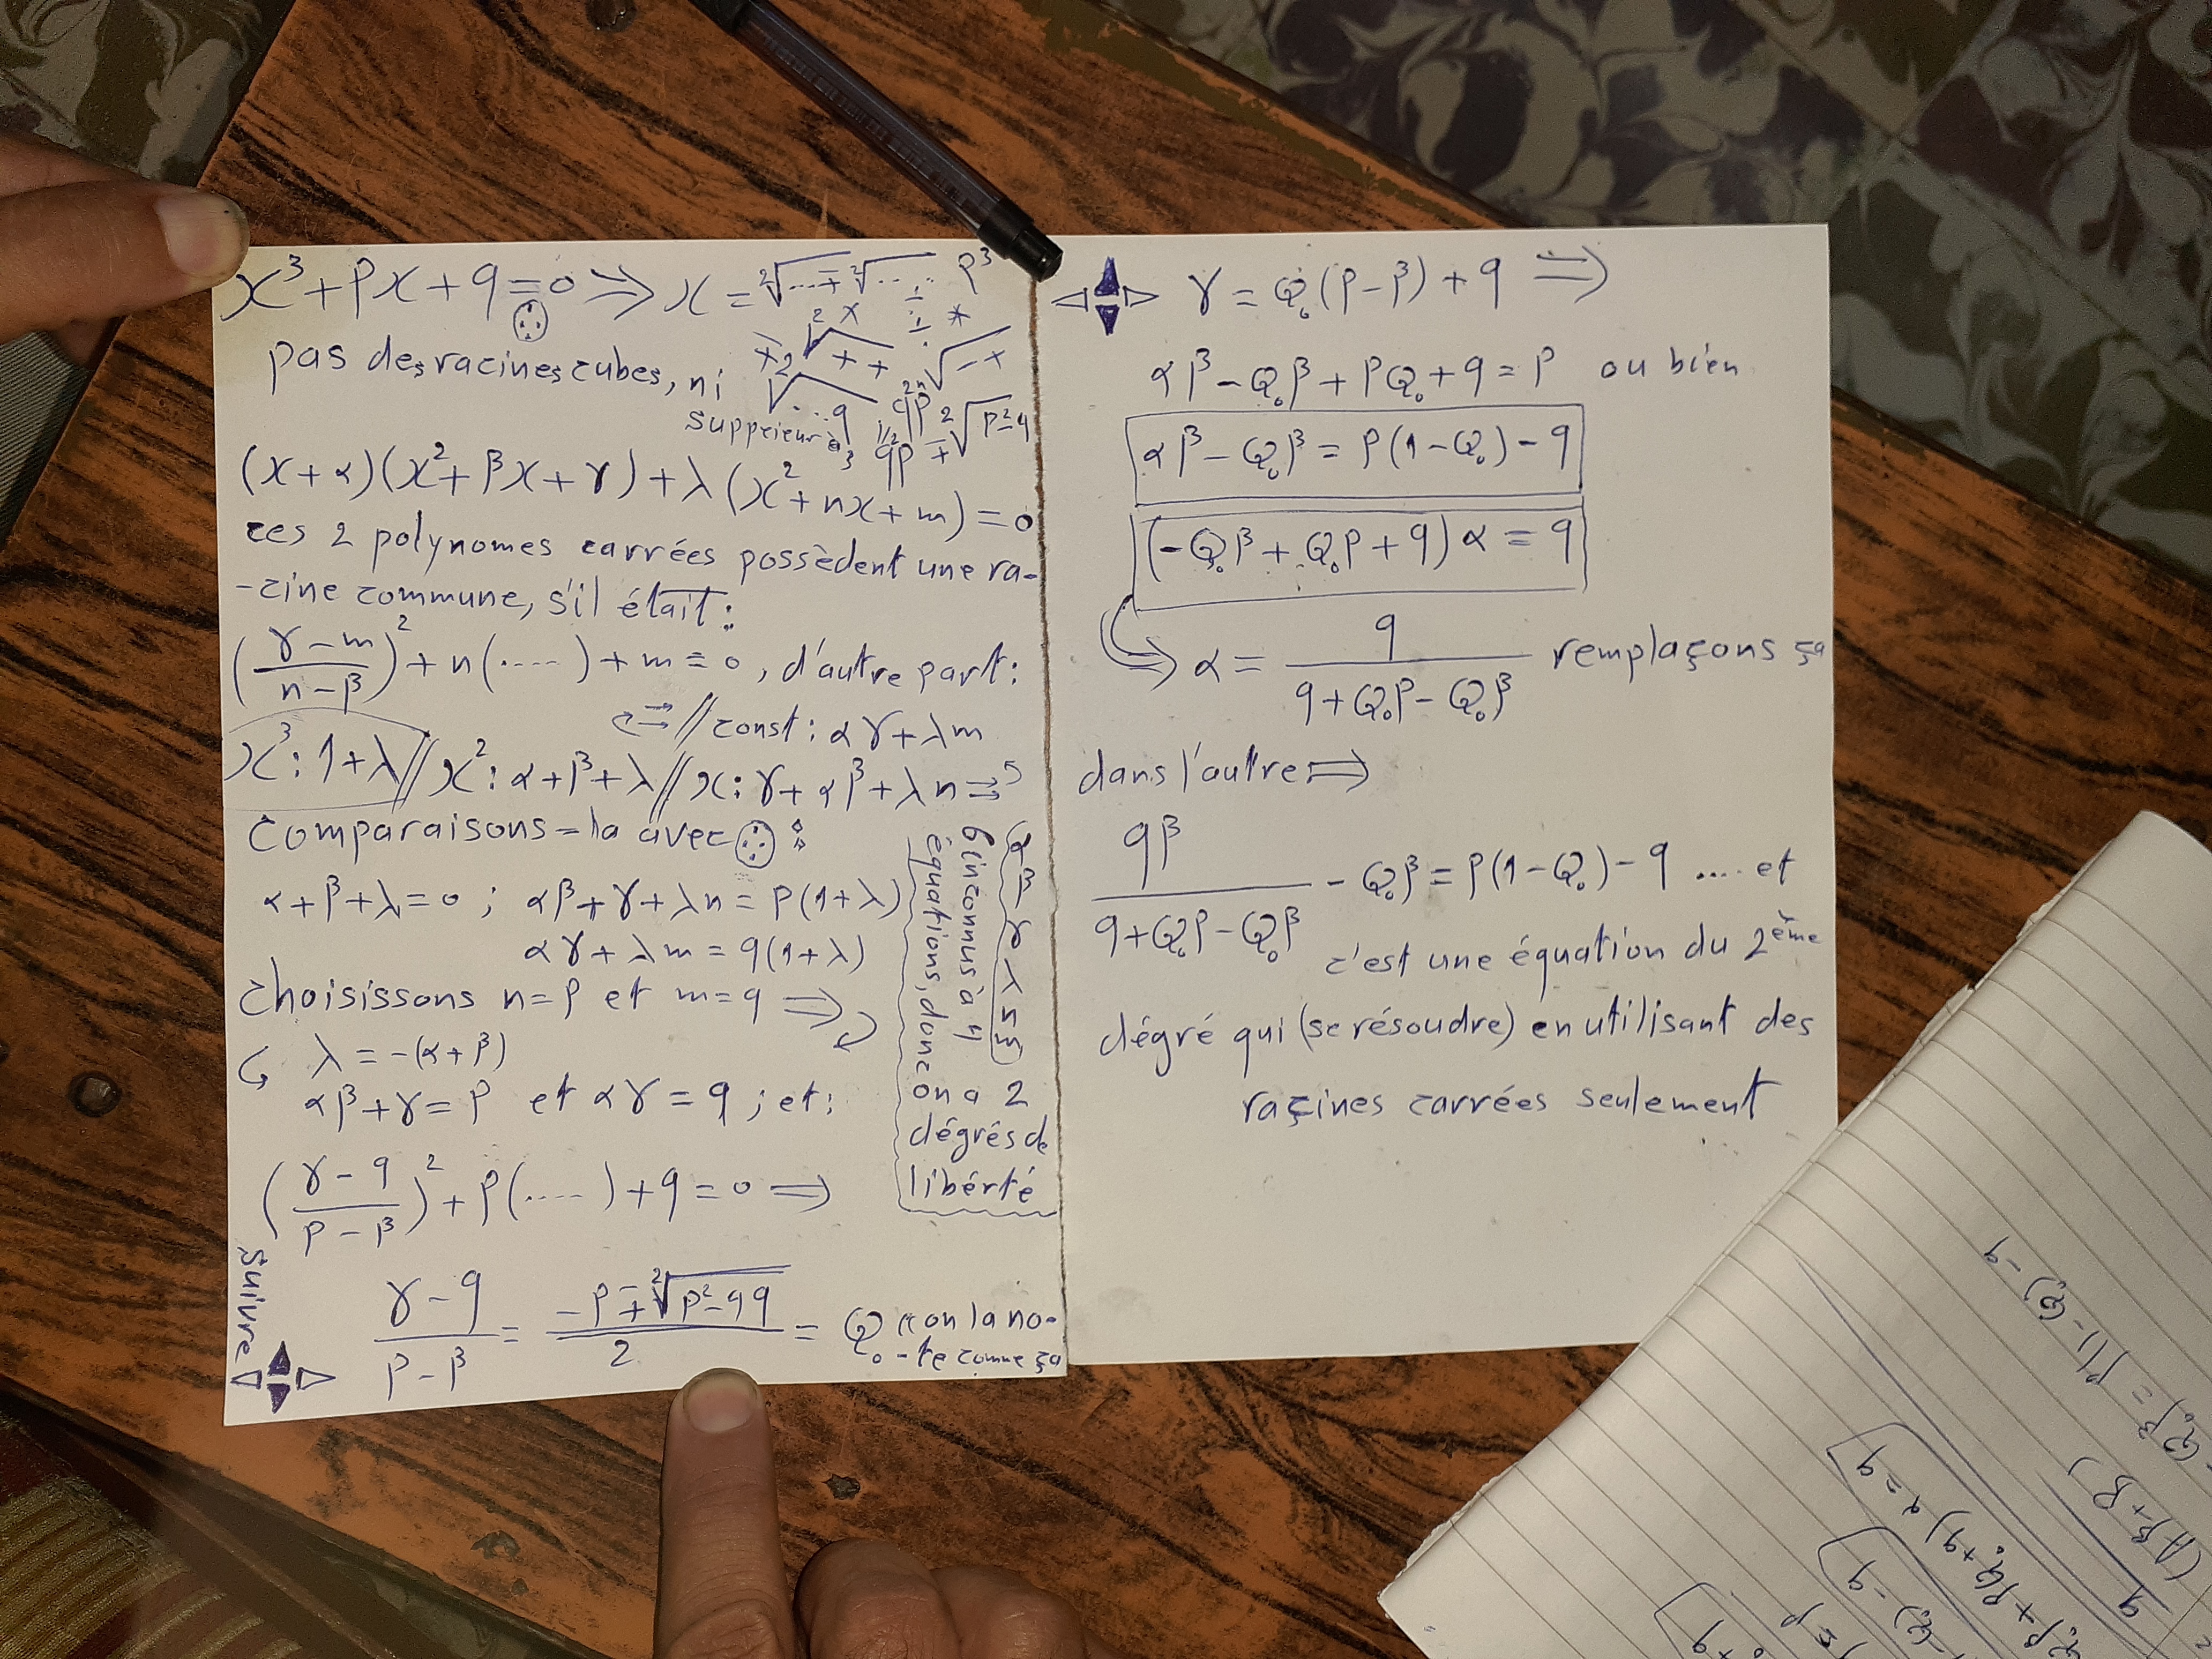 x³+px+q=0 ⇒ x = ²√...∓²√..... p³
pas des racines cubes, ni
suppeieur à
(x+α)(x²+βx+γ)+λ(x²+nx+m)=0
ces 2 polynomes carrées possèdent une ra-
-cine commune, s'il était:
((γ-m)/(n-β))²+n(.....)+m=0, d'autre part:
// const: αγ+λm
x³: 1+λ // x²: α+β+λ // x: γ+αβ+λn
Comparaisons-la avec :
α+β+λ=0 ; αβ+γ+λn=p(1+λ)
αγ+λm=q(1+λ)
choisissons n=p et m=q ⇒
λ=-(α+β)
αβ+γ=p et αγ=q ; et:
((γ-q)/(p-β))²+p(.....)+q=0 ⇒
(γ-q)/(p-β) = (-p∓²√(p²-4q))/2 = Q₀ "on la no-
-te comme ça
Suivre
α β γ λ n m
6 inconnus à 4
équations, donc
on a 2
dégrés de
libérté
γ=Q₀(p-β)+q ⇒
αβ-Q₀β+pQ₀+q=p ou bien
αβ-Q₀β=p(1-Q₀)-q
(-Q₀β+Q₀p+q)α=q
α = q/(q+Q₀p-Q₀β) remplaçons ça
dans l'autre ⇒
qβ/(q+Q₀p-Q₀β) - Q₀β=p(1-Q₀)-q .... et
c'est une équation du 2ème
dégré qui (se résoudre) en utilisant des
raçines carrées seulement